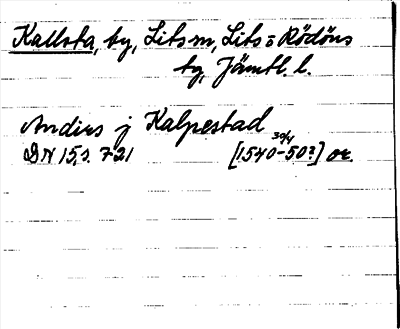 Kallsta, by, Lits sn, Lits o Rödöns
tg, Jämtl. l.
Andirs j Kalpestad
DN 15, s. 721 [1540-50?] 30/4 or.